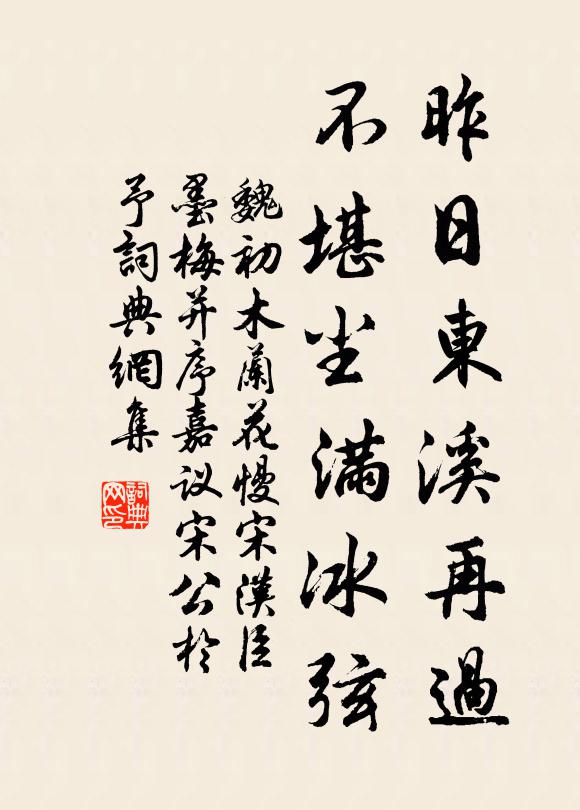 昨日東溪再過
不堪尘滿冰弦
魏初木蘭花慢宋漢臣
墨梅并序嘉议宋公於
予詞典網集
詞典网印